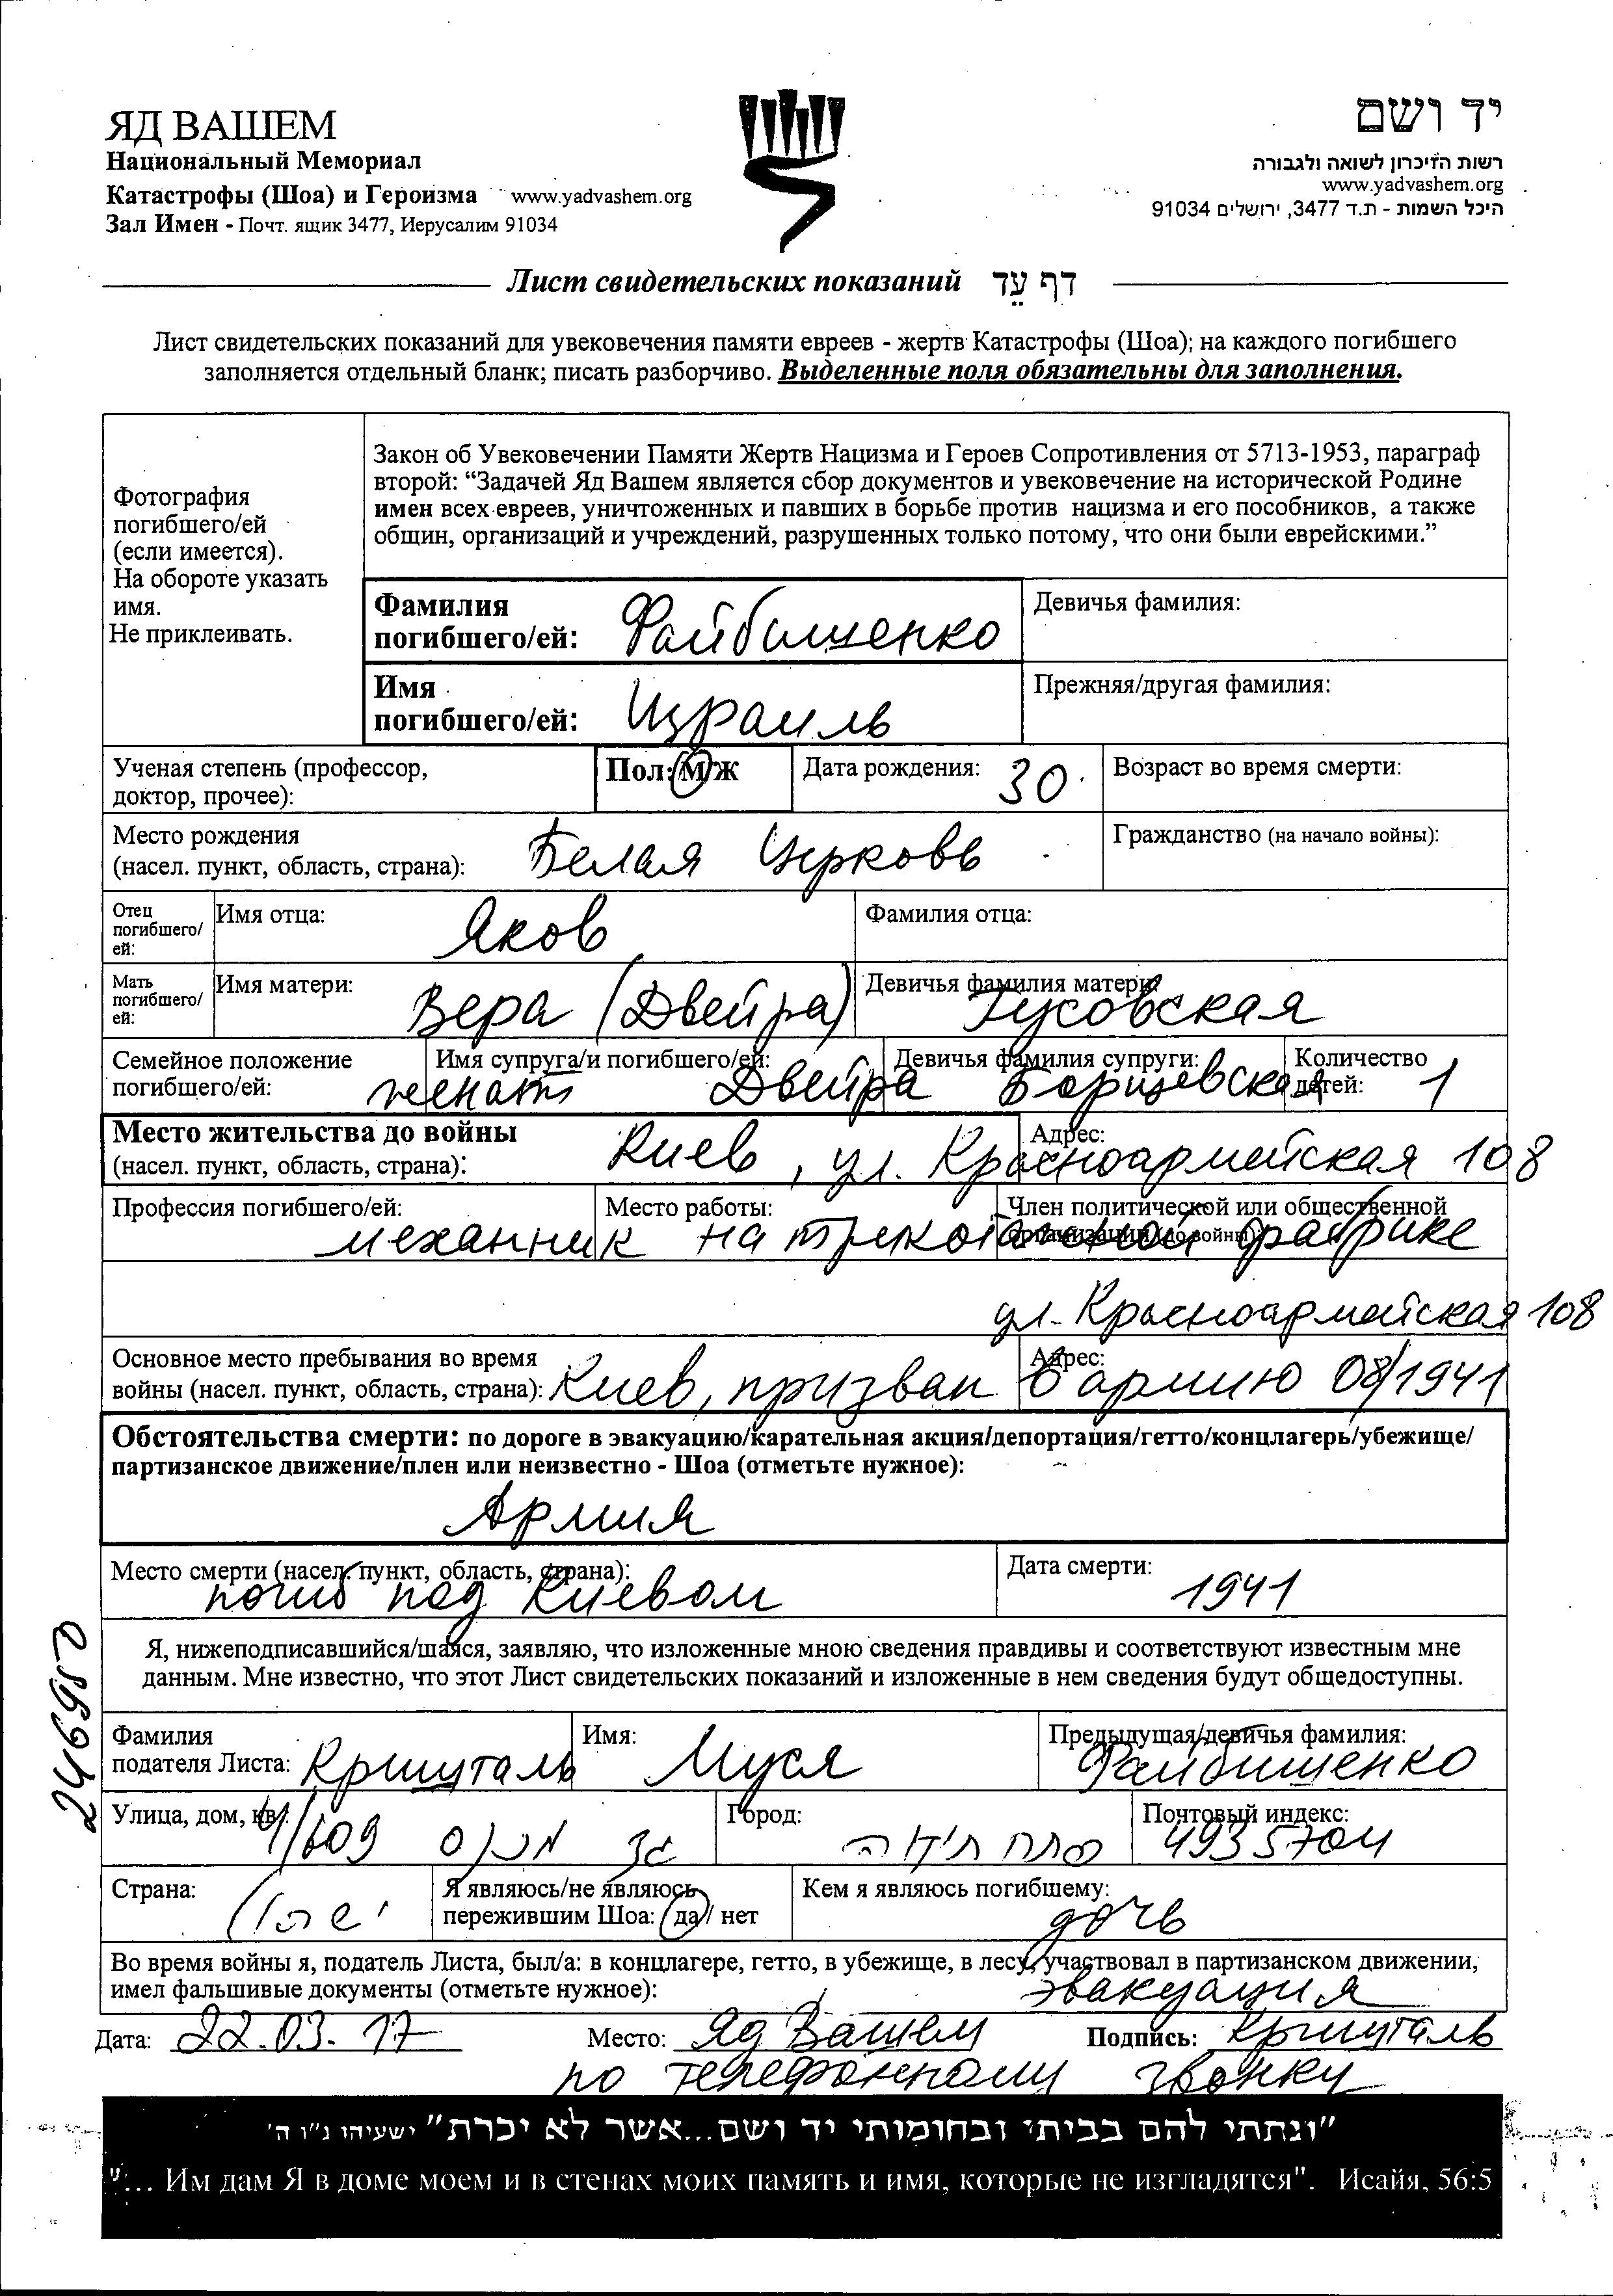 ЯД ВАШЕМ
Национальный Мемориал
Катастрофы (Шоа) и Героизма www.yadvashem.org
Зал Имен - Почт. ящик 3477, Иерусалим 91034
יד ושם
רשות הזיכרון לשואה ולגבורה
www.yadvashem.org
היכל השמות - ת.ד 3477, ירושלים 91034
Лист свидетельских показаний דף עֵד
Лист свидетельских показаний для увековечения памяти евреев - жертв Катастрофы (Шоа); на каждого погибшего
заполняется отдельный бланк; писать разборчиво. Выделенные поля обязательны для заполнения.
Фотография
погибшего/ей
(если имеется).
На обороте указать
имя.
Не приклеивать.
Закон об Увековечении Памяти Жертв Нацизма и Героев Сопротивления от 5713-1953, параграф
второй: “Задачей Яд Вашем является сбор документов и увековечение на исторической Родине
имен всех евреев, уничтоженных и павших в борьбе против нацизма и его пособников, а также
общин, организаций и учреждений, разрушенных только потому, что они были еврейскими.”
Фамилия
погибшего/ей: Файбишенко
Девичья фамилия:
Имя
погибшего/ей: Израиль
Прежняя/другая фамилия:
Ученая степень (профессор,
доктор, прочее):
Пол: М/Ж
Дата рождения: 30
Возраст во время смерти:
Место рождения
(насел. пункт, область, страна): Белая Церковь
Гражданство (на начало войны):
Отец
погибшего/
ей:
Имя отца: Яков
Фамилия отца:
Мать
погибшего/
ей:
Имя матери: Вера (Двейра)
Девичья фамилия матери: Гусовская
Семейное положение
погибшего/ей: женат
Имя супруга/и погибшего/ей: Двейра
Девичья фамилия супруги: Борщевская
Количество
детей: 1
Место жительства до войны
(насел. пункт, область, страна): Киев, ул. Красноармейская 108
Адрес:
Профессия погибшего/ей: механник
Место работы: на трикотажной фабрике
Член политической или общественной
организации (до войны):
ул. Красноармейская 108
Основное место пребывания во время
войны (насел. пункт, область, страна): Киев, призван в армию 08/1941
Адрес:
Обстоятельства смерти: по дороге в эвакуацию/карательная акция/депортация/гетто/концлагерь/убежище/
партизанское движение/плен или неизвестно - Шоа (отметьте нужное):
Армия
Место смерти (насел. пункт, область, страна):
погиб под Киевом
Дата смерти:
1941
Я, нижеподписавшийся/шаяся, заявляю, что изложенные мною сведения правдивы и соответствуют известным мне
данным. Мне известно, что этот Лист свидетельских показаний и изложенные в нем сведения будут общедоступны.
Фамилия
подателя Листа: Кришталь
Имя: Муся
Предыдущая/девичья фамилия:
Файбишенко
Улица, дом, кв.:
Город: פתח תקוה
Почтовый индекс:
4935704
Страна: ישראל
Я являюсь/не являюсь
пережившим Шоа: да / нет
Кем я являюсь погибшему:
дочь
Во время войны я, податель Листа, был/а: в концлагере, гетто, в убежище, в лесу, участвовал в партизанском движении,
имел фальшивые документы (отметьте нужное): эвакуация
Дата: 22.03.17 Место: Яд Вашем Подпись: Кришталь
по телефонному звонку
"ונתתי להם בביתי ובחומותי יד ושם...אשר לא יכרת" ישעיהו נ"ו ה'
"... Им дам Я в доме моем и в стенах моих память и имя, которые не изгладятся". Исайя, 56:5